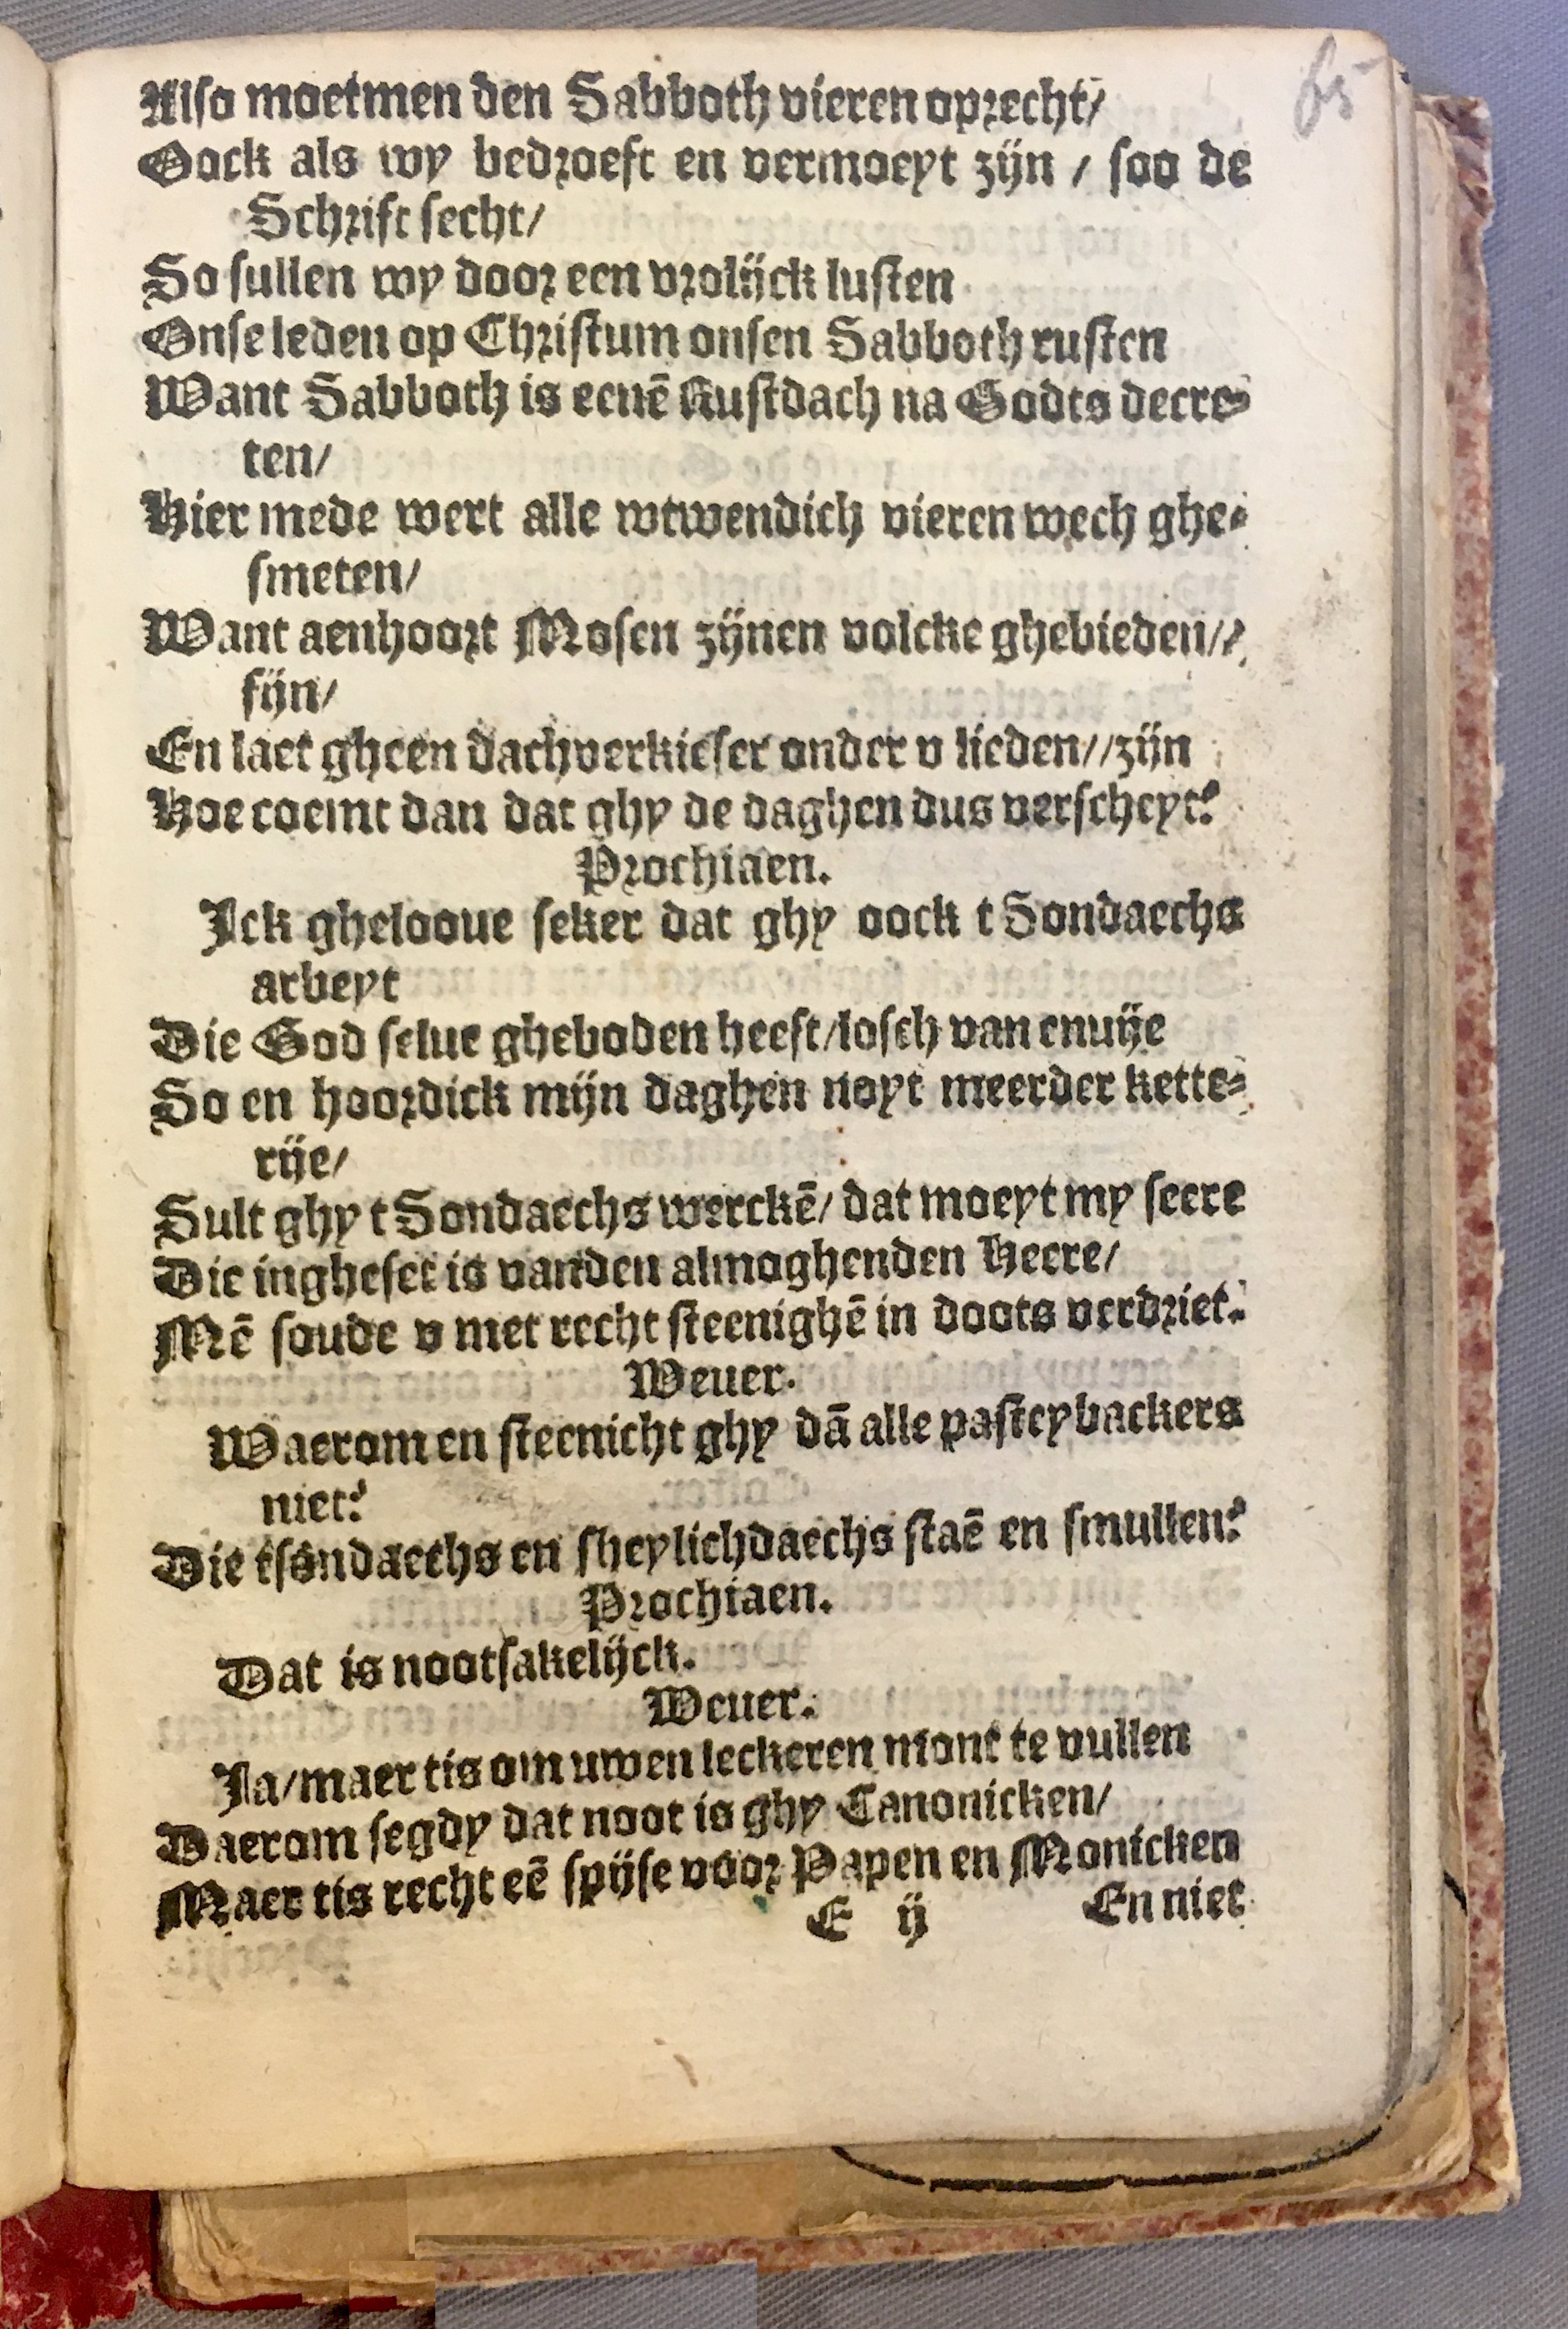 65
Also moetmen den Sabboth vieren oprecht/
Oock als wy bedroeft en vermoeyt zijn / soo de
Schrift secht/
So sullen wy door een vrolijck lusten
Onse leden op Christum onsen Sabboth rusten
Want Sabboth is eenē Rustdach na Godts decre-
ten/
Hier mede wert alle wtwendich vieren wech ghe-
smeten/
Want aenhoort Mosen zijnen volcke ghebieden//
fijn/
En laet gheen dachverkieser onder v lieden//zijn
Hoe coemt dan dat ghy de daghen dus verscheyt?
Prochiaen.
Ick gheloove seker dat ghy oock t Sondaechs
arbeyt
Die God selue gheboden heeft/losch van enuije
So en hoordick mijn daghen noyt meerder kette-
rije/
Sult ghy t Sondaechs werckē/ dat moeyt my seere
Die ingheset is vanden almoghenden Heere/
Mē soude v met recht steenighē in doots verdriet.
Weuer.
Waerom en steenicht ghy dā alle pasteybackers
niet?
Die tsondaechs en sheylichdaechs staē en smullen?
Prochiaen.
Dat is nootsakelijck.
Weuer.
Ja/maer tis om uwen leckeren mont te vullen
Daerom segdy dat noot is ghy Canonicken/
Maer tis recht eē spijse voor Papen en Monicken
E ij En niet